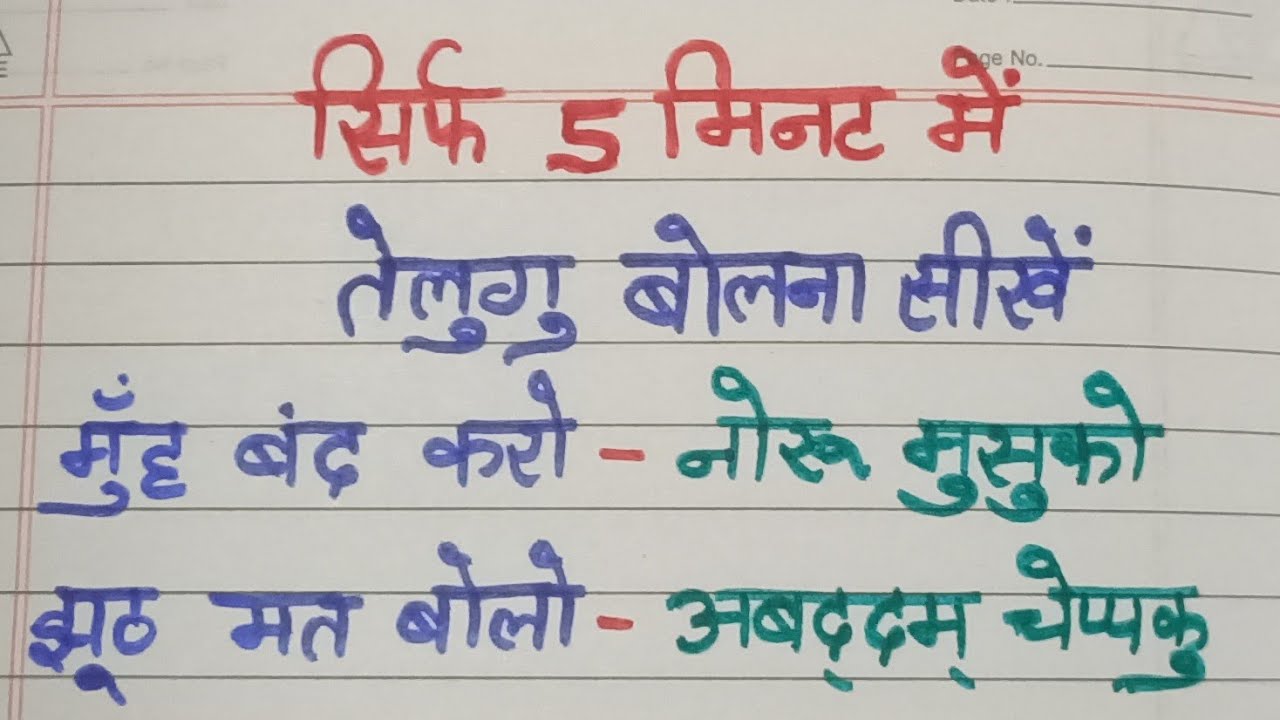 Page No.
सिर्फ 5 मिनट में
तेलुगु बोलना सीखें
मुँह बंद करो - नोरू मुसुको
झूठ मत बोलो - अबद्दम् चेप्पकु